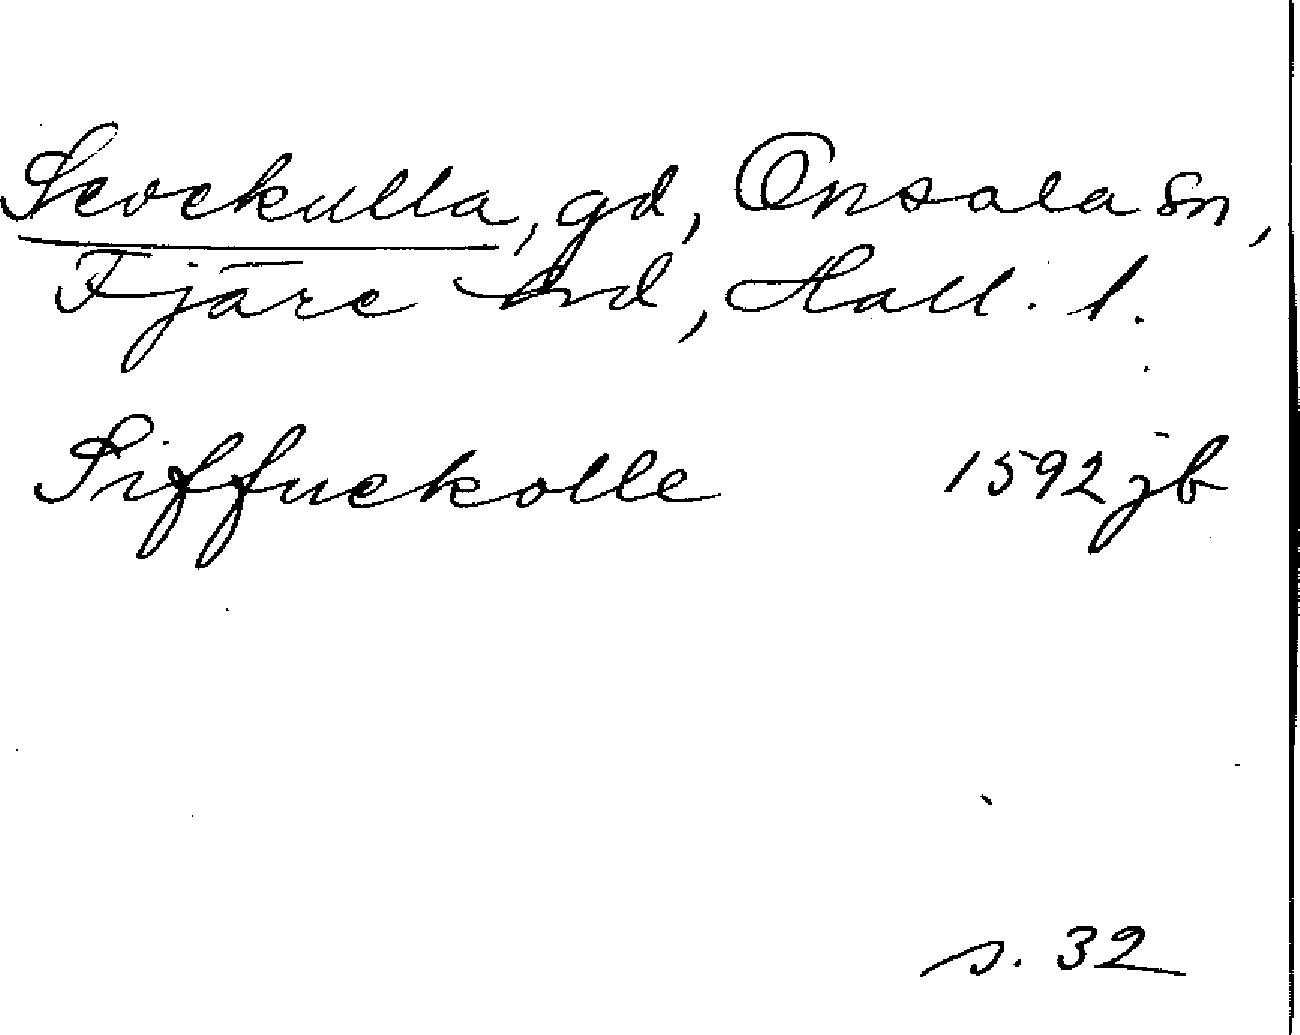 Sevekulla, gd, Onsala sn,
Fjäre hd, Hall. l.
Siffuekolle 1592 jb
s. 32